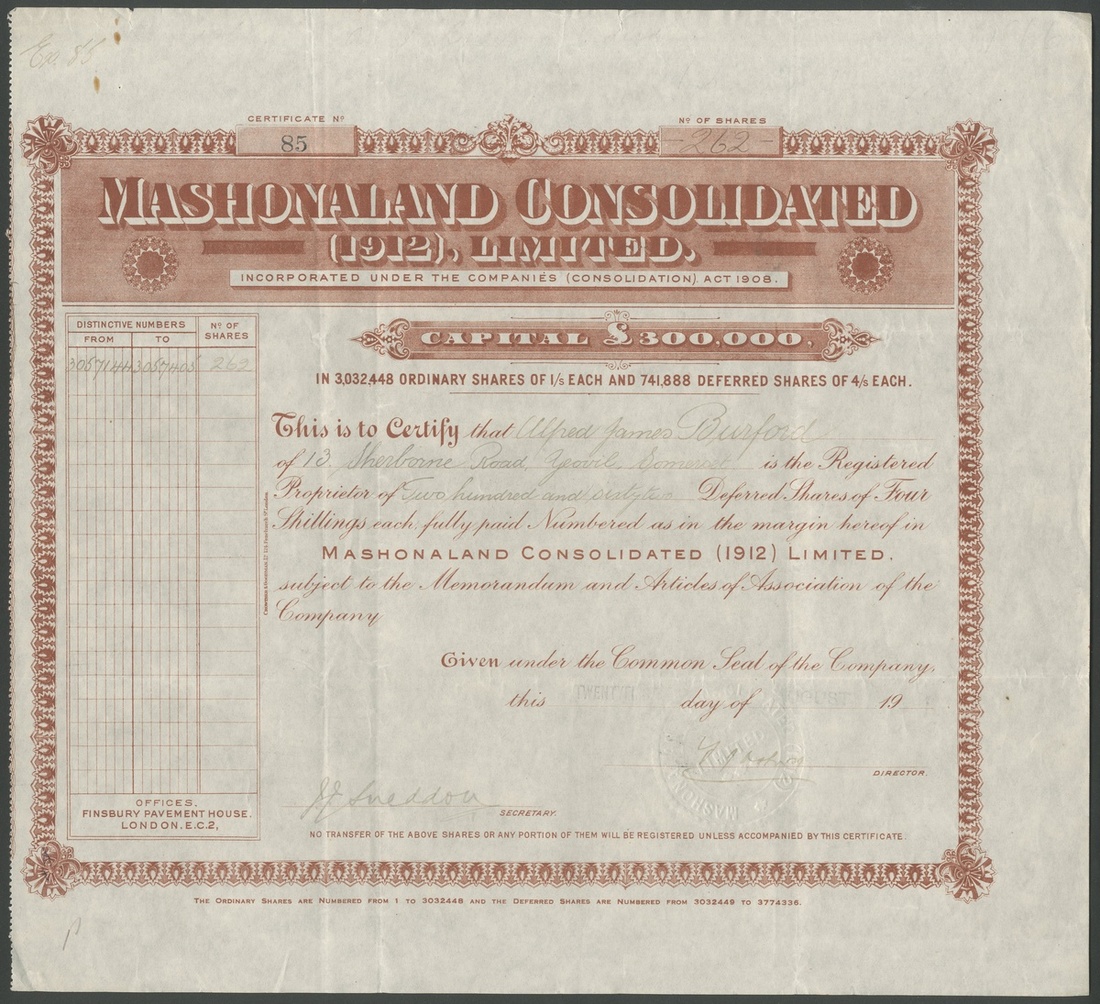 Ex. 85
CERTIFICATE Nº
85
Nº OF SHARES
262
MASHONALAND CONSOLIDATED
(1912), LIMITED.
INCORPORATED UNDER THE COMPANIES (CONSOLIDATION) ACT 1908.
DISTINCTIVE NUMBERS
Nº OF SHARES
FROM TO
3057144 3057405 262
CAPITAL £300,000,
IN 3,032,448 ORDINARY SHARES OF 1/s EACH AND 741,888 DEFERRED SHARES OF 4/s EACH.
This is to Certify that Alfred James Burford
of 13 Sherborne Road, Yeovil, Somerset is the Registered
Proprietor of Two hundred and sixty two Deferred Shares of Four
Shillings each, fully paid Numbered as in the margin hereof in
MASHONALAND CONSOLIDATED (1912) LIMITED.
subject to the Memorandum and Articles of Association of the
Company
Given under the Common Seal of the Company,
this day of 19
DIRECTOR.
SECRETARY.
OFFICES.
FINSBURY PAVEMENT HOUSE.
LONDON. E.C.2,
NO TRANSFER OF THE ABOVE SHARES OR ANY PORTION OF THEM WILL BE REGISTERED UNLESS ACCOMPANIED BY THIS CERTIFICATE.
THE ORDINARY SHARES ARE NUMBERED FROM 1 TO 3032448 AND THE DEFERRED SHARES ARE NUMBERED FROM 3032449 TO 3774336.